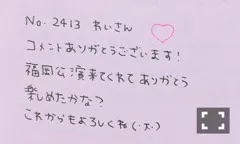 No. 2413 れいさん
コメントありがとうございます!
福岡公演来てくれて ありがとう
楽しめたかな?
これからもよろしくね(･ᴥ･)